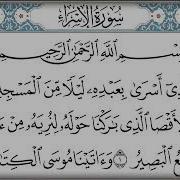 سُورَةُ الْإِسْرَاءِ
سْمِ ٱللَّهِ ٱلرَّحْمَٰنِ ٱلرَّحِيمِ
ىٓ أَسْرَىٰ بِعَبْدِهِۦ لَيْلًا مِّنَ ٱلْمَسْجِدِ
لْأَقْصَا ٱلَّذِى بَٰرَكْنَا حَوْلَهُۥ لِنُرِيَهُۥ مِنْ ءَ
عُ ٱلْبَصِيرُ ١ وَءَاتَيْنَا مُوسَى ٱلْكِتَٰ